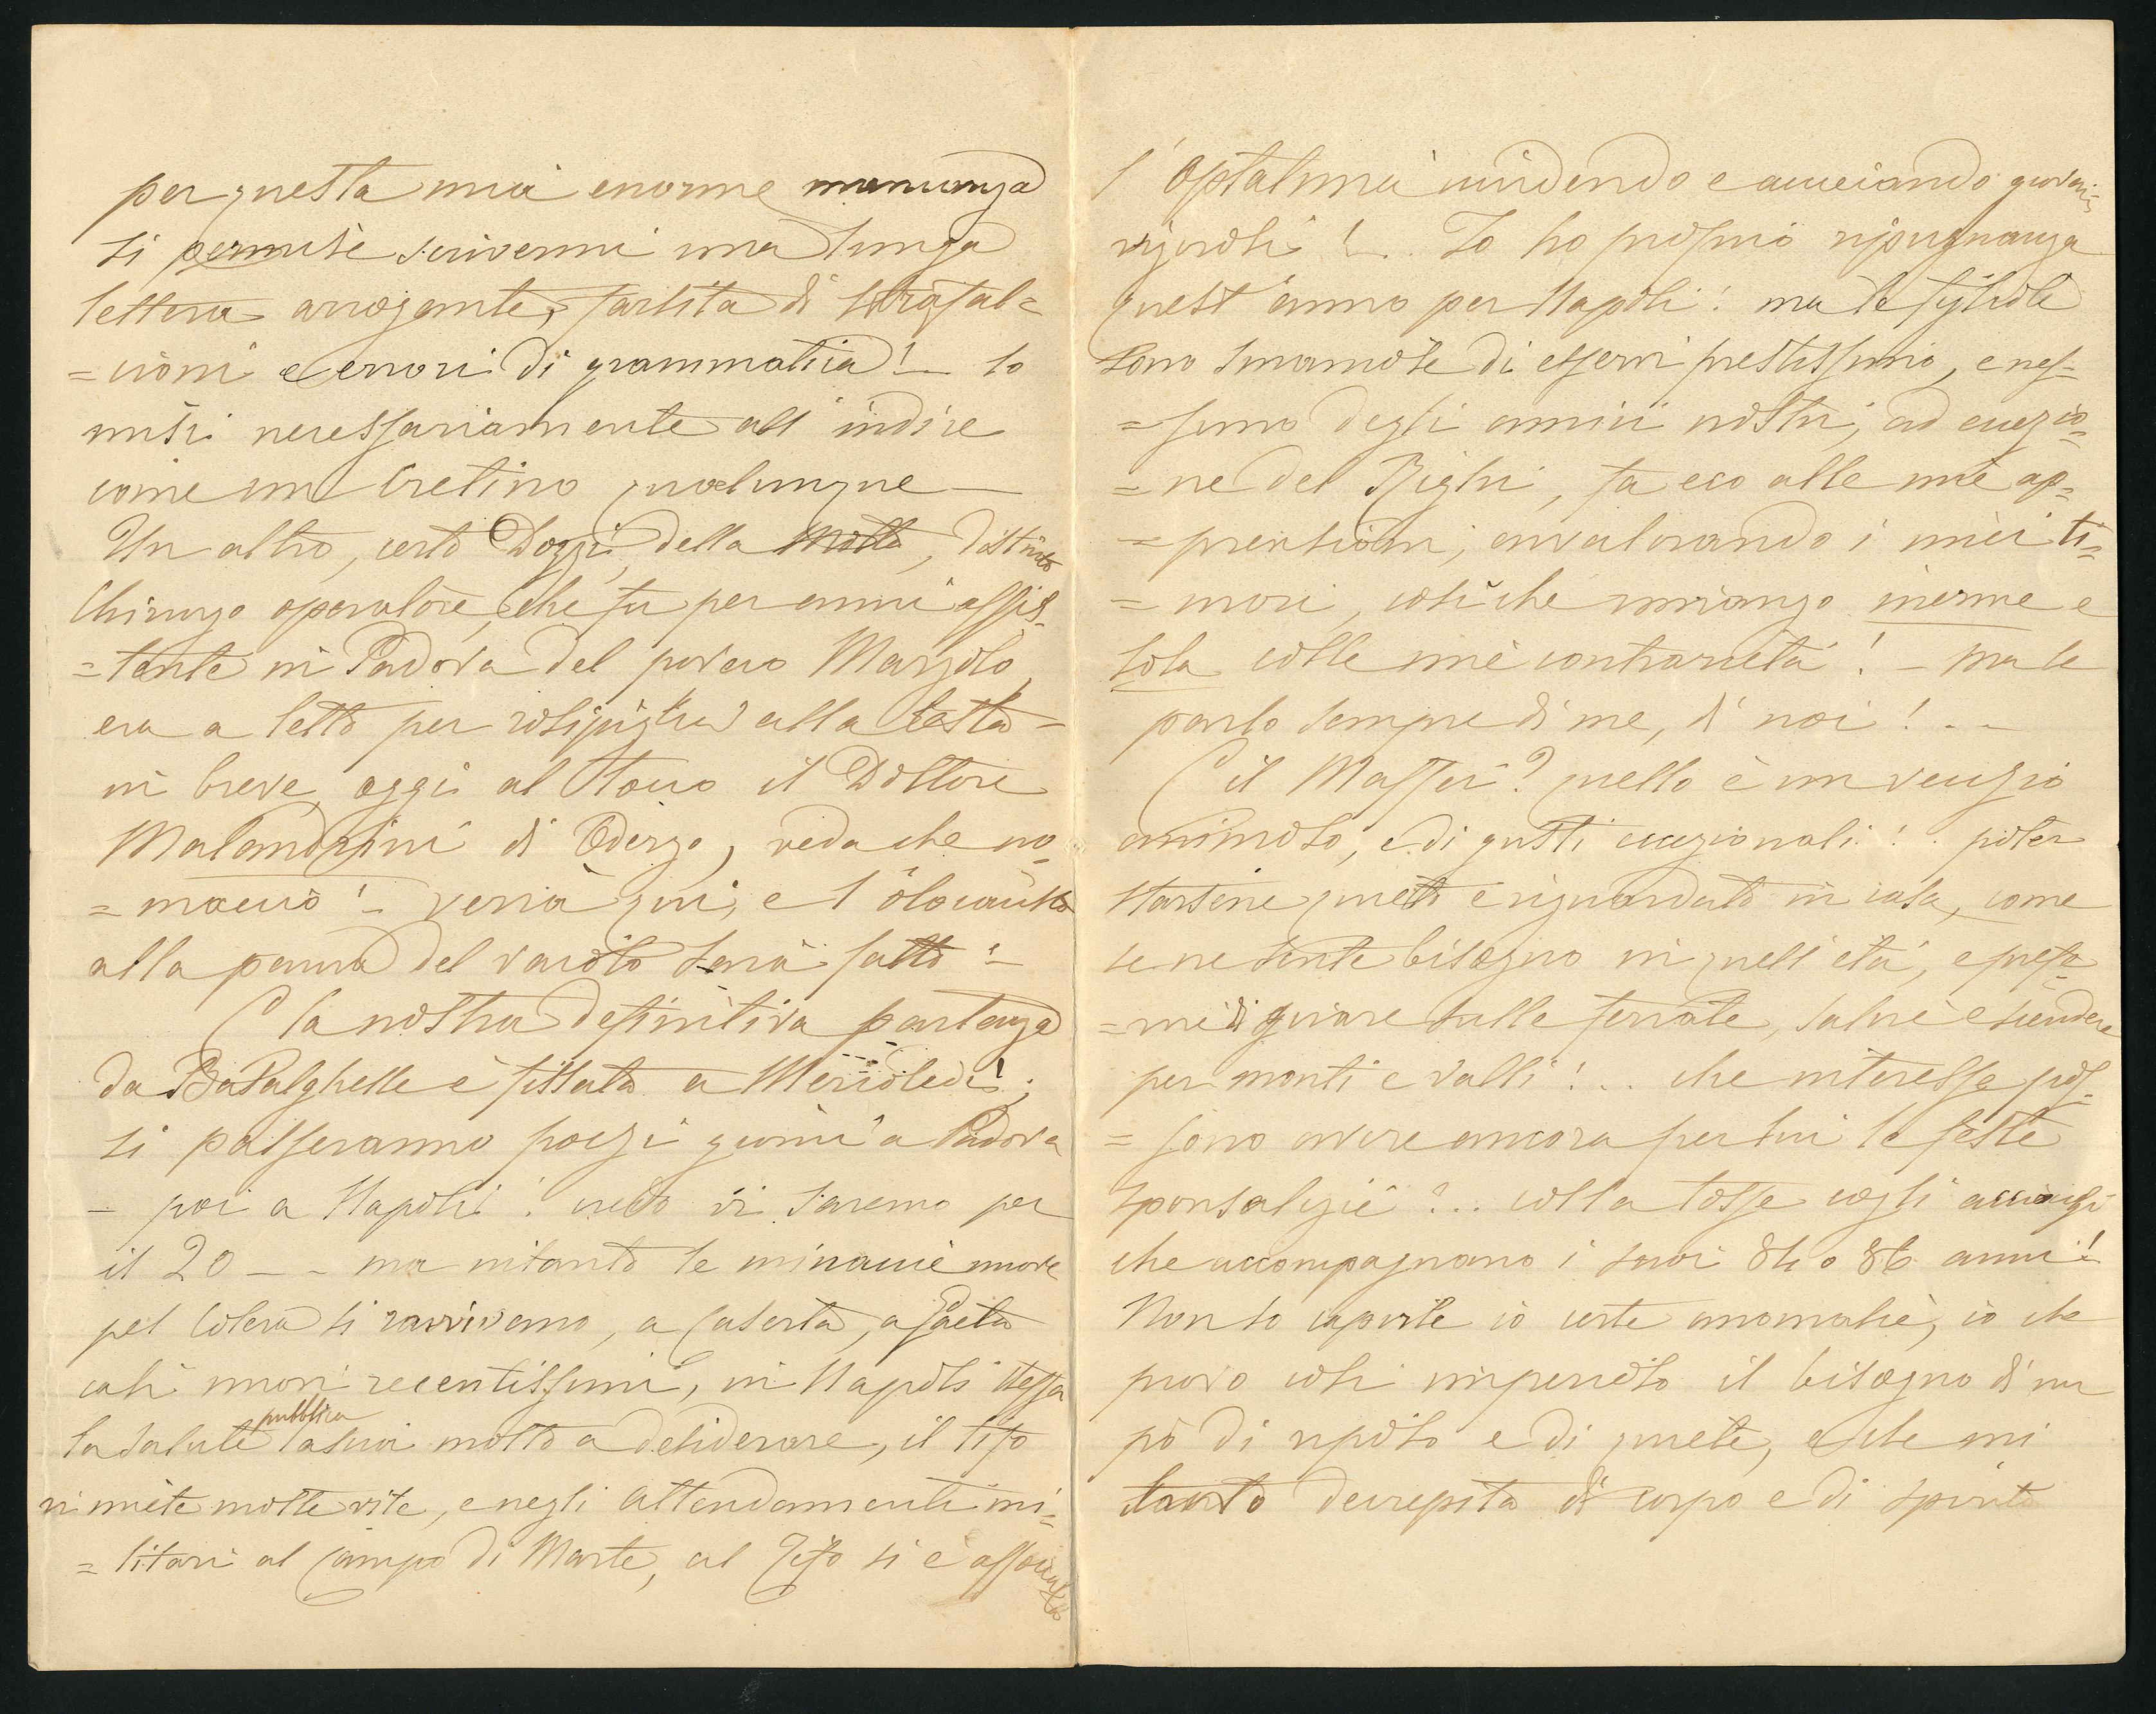 per questa mia enorme mancanza
si permise scrivermi una lunga
lettera arrogante, farcita di strafal=
=cioni e errori di grammatica! lo
misi necessariamente all'indice
come un cretino qualunque —
Un altro, certo Dozzi, della Motta, distinto
Chirurgo operatore, che fu per anni assis=
=tente in Padova del povero Marzolo,
era a letto per risipiglia alla testa —
in breve, oggi al tocco il Dottore
Malandrini di Oderzo, veda che no=
=maccio! — verrà qui, e l'olocausto
alla paura del vaiolo sarà fatto! —
E la nostra definitiva partenza
da Basalghelle è fissata a Mercoledì!;
si passeranno pochi giorni a Padova
— poi a Napoli! credo vi saremo per
il 20 — - ma intanto le minaccie nuove
pel Colera si ravvivano, a Caserta, a Gaeta
casi nuovi recentissimi, in Napoli stessa
la salute pubblica lascia molto a desiderare, il tifo
vi miete molte vite, e negli Attendamenti mi=
=litari al Campo di Marte, al Tifo si è associata
l'Optalmia uccidendo e acciecando giovani
vigorosi! .. Io ho proprio ripugnanza
quest'anno per Napoli! ma le figliole
sono smaniose di esservi prestissimo, e nes=
=suno degli amici nostri, ad eccezio=
=ne del Righi, fa eco alle mie ap=
=prensioni, avvalorando i miei ti=
=mori, cosichè rimango inerme e
sola colle mie contrarietà! — ma le
parlo sempre di me, di noi! . . —
E il Maffei? quello è un vecchio
animoso, e di gusti eccezionali! . poter
starsene quieto e riguardato in casa, come
se ne sente bisogno in quell'età, e prefe
=rire di girare sulle ferrate, salire e scendere
per monti e valli! . . che interesse pos=
=sono avere ancora per lui le feste
sponsalizie? .. colla tosse cogli acciacchi
che accompagnano i suoi 84 o 86 anni!
Non so capirle io certe anomalie, io che
provo così imperioso il bisogno di un
pò di riposo e di quiete, e che mi
sento decrepita di corpo e di spirito